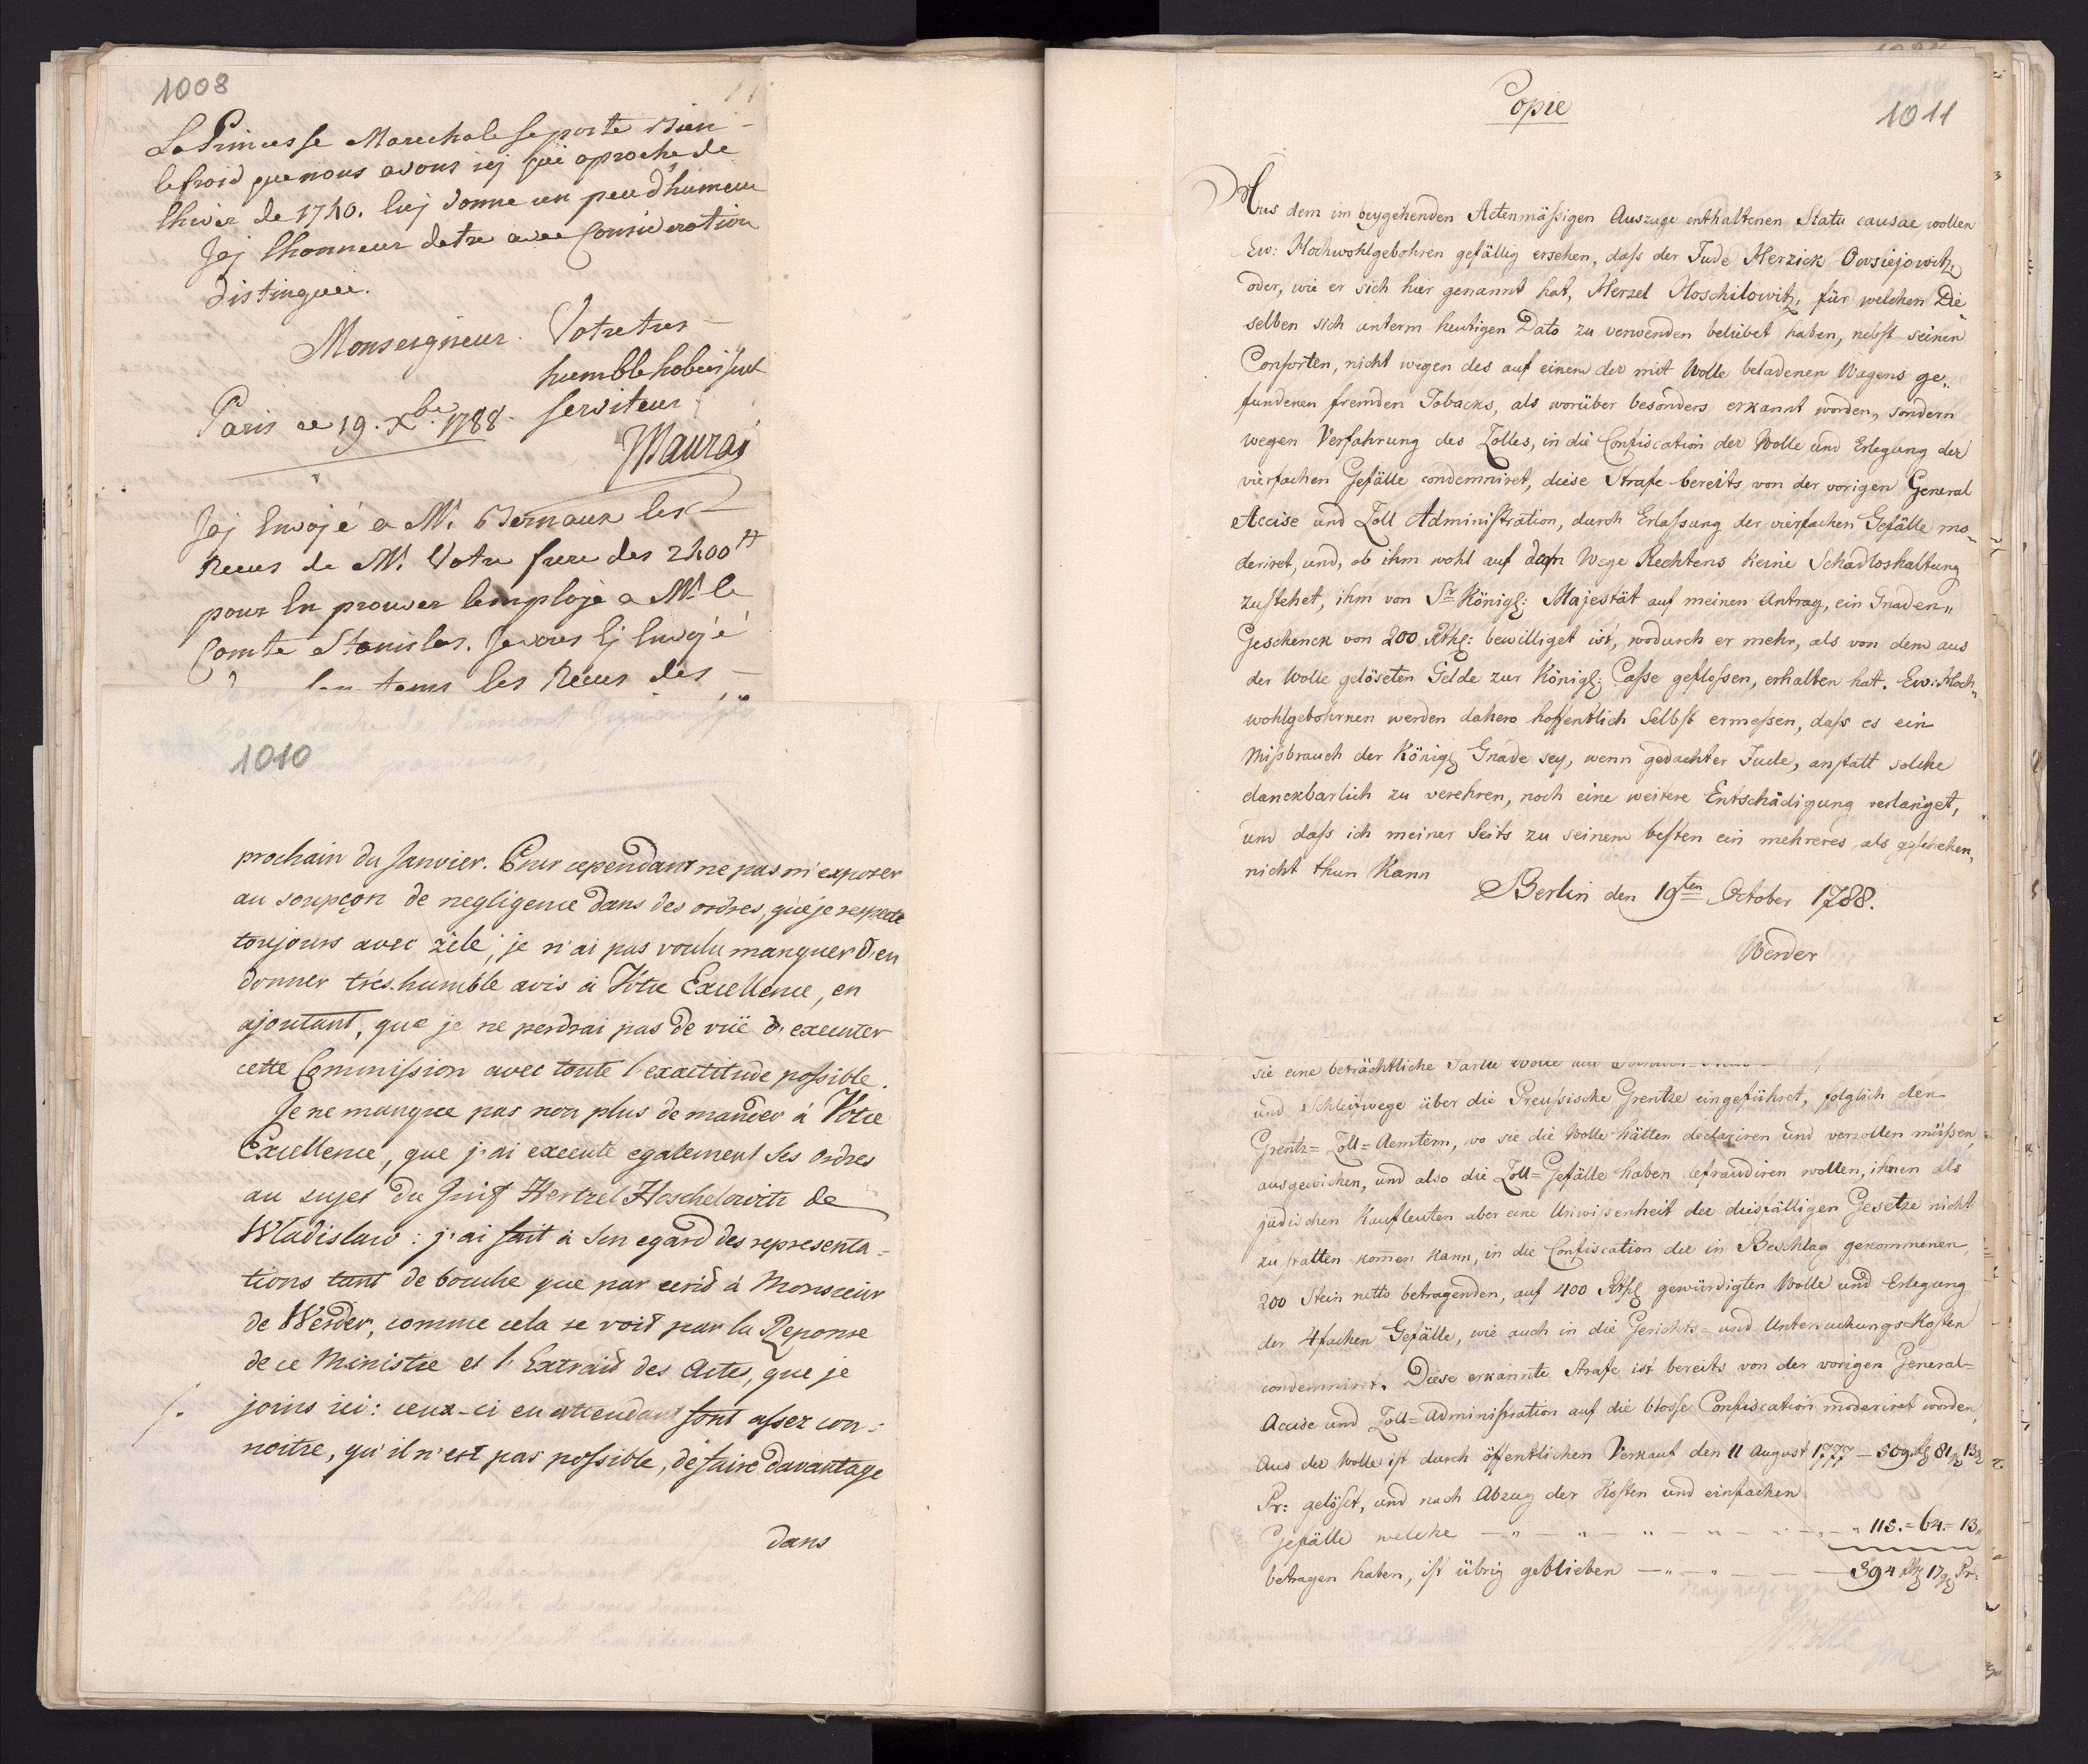 1008
La Princesse Marechale se porte Bien –
le froid que nous avons icj qui aproche de
lhiver de 1740. luj donne un peu d'humeur
Jaj lhonneur detre avec Consideration
distinguée.
Monseigneur. Votre tres –
humble hobeissent
Paris ce 19. Xbre 1788. serviteur
Mauraj
Jaj Envojé a Mr. Bernaux les
Recus de Mr. Votre frere des 2400 tt
pour En prouver lemploje a Mr. le
Comte Stanislas. Je vous Ej Envojé
tems les Recus des –
1010
prochain du Janvier. Pour cependant ne pas m'exposer
au soupçon de negligence dans des ordres, que je respecte
toujours avec zèle, je n'ai pas voulu manquer d'en
donner trés-humble avis à Votre Excellence, en
ajoutant, que je ne perdrai pas de vuë d'executer
cette Commission avec toute l'exactitude possible.
Je ne manque pas non plus de mander à Votre
Excellence, que j'ai executé egalement Ses Ordres
au sujet du Juif Hertzel Hoschelowitz de
Wladislaw: j'ai fait à son egard des representa-
tions tant de bouche que par ecrit à Monsieur
de Werder, comme cela se voit par la Reponse
de ce Ministre et l'Extrait des Actes, que je
joins ici: ceux-ci en attendant font assez con-
noitre, qu'il n'est pas possible, de faire davantage
dans
Copie
1011
Aus dem im beygehenden Actenmäßigen Auszuge enthaltenen Statu causae wollen
Ew: Hochwohlgebohren gefällig ersehen, daß der Jude Herzick Owsiejowitz,
oder, wie er sich hier genannt hat, Herzel Hoschilowitz, für welchen Die
selben sich unterm heutigen Dato zu verwenden beliebet haben, nebst seinen
Consorten, nicht wegen des auf einem der mit Wolle beladenen Wagens ge„
fundenen fremden Tobacks, als worüber besonders erkannt worden, sondern
wegen Verfahrung des Zolles, in die Confiscation der Wolle und Erlegung der
vierfachen Gefälle condemniret, diese Strafe bereits von der vorigen General
Accise und Zoll Administration, durch Erlaßung der vierfachen Gefälle mo-
deriret, und, ob ihm wohl auf dem Wege Rechtens keine Schadloshaltung
zustehet, ihm von Sr. Königl: Majestät auf meinen Antrag, ein Gnaden„
Geschenck von 200 Rthl: bewilliget ist, wodurch er mehr, als von dem aus
der Wolle gelöseten Gelde zur Königl: Casse geflossen, erhalten hat. Ew: Hoch„
wohlgebohrnen werden dahero hoffentlich Selbst ermeßen, daß es ein
Mißbrauch der Königl Gnade sey, wenn gedachter Jude, anstatt solche
danckbarlich zu verehren, noch eine weitere Entschädigung verlanget,
und daß ich meiner Seits zu seinem besten ein mehreres, als geschehen,
nicht thun kann
Berlin den 19ten October 1788.
Werder
sie eine beträchtliche Partie Wolle
und Schleifwege über die Preußische Grentze eingeführet, folglich den
Grentz=Zoll=Aemtern, wo sie die Wolle hätten declariren und verzollen müßen,
ausgewichen, und also die Zoll=Gefälle haben defraudiren wollen, ihnen als
jüdischen Kaufleuten aber eine Unwißenheit der diesfälligen Gesetze nicht
zu statten kommen kann, in die Confiscation der in Beschlag genommenen,
200 Stein netto betragenden, auf 400 Rthl gewürdigten Wolle und Erlegung
der 4fachen Gefälle, wie auch in die Gerichts= und Untersuchungs=Kosten
condemniret. Diese erkannte Strafe ist bereits von der vorigen General=
Accise und Zoll=Administration auf die blosse Confiscation moderiret worden,
Aus der Wolle ist durch öffentlichen Verkauf den 11 August 1777 – 509.
Pr: gelöset, und nach Abzug der Kosten und einfachen
Gefälle welche – „ – „ – „ – „ – „ – „ 115.= 64.= 13„
betragen haben, ist übrig geblieben – „ – „ – – – 394 17 Pr: